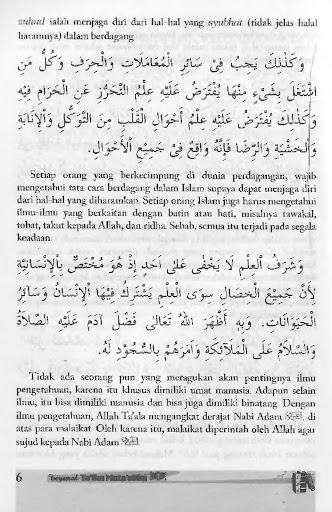 zuhud ialah menjaga diri dari hal-hal yang syubhat (tidak jelas halal
haramnya) dalam berdagang
وَكَذٰلِكَ يَجِبُ فِيْ سَائِرِ الْمُعَامَلَاتِ وَالْحِرَفِ وَكُلُّ مَنِ
اشْتَغَلَ بِشَيْءٍ مِنْهَا يُفْتَرَضُ عَلَيْهِ عِلْمُ التَّحَرُّزِ عَنِ الْحَرَامِ فِيْهِ
وَكَذٰلِكَ يُفْتَرَضُ عَلَيْهِ عِلْمُ أَحْوَالِ الْقَلْبِ مِنَ التَّوَكُّلِ وَالْإِنَابَةِ
وَالْخَشْيَةِ وَالرِّضَا فَإِنَّهُ وَاقِعٌ فِيْ جَمِيْعِ الْأَحْوَالِ.
Setiap orang yang berkecimpung di dunia perdagangan, wajib
mengetahui tata cara berdagang dalam Islam supaya dapat menjaga diri
dari hal-hal yang diharamkan Setiap orang Islam juga harus mengetahui
ilmu-ilmu yang berkaitan dengan batin atau hati, misalnya tawakal,
tobat, takut kepada Allah, dan ridha. Sebab, semua itu terjadi pada segala
keadaan.
وَشَرَفُ الْعِلْمِ لَا يَخْفٰى عَلٰى أَحَدٍ إِذْ هُوَ مُخْتَصٌّ بِالْإِنْسَانِيَّةِ
لِأَنَّ جَمِيْعَ الْخِصَالِ سِوَى الْعِلْمِ يَشْتَرِكُ فِيْهَا الْإِنْسَانُ وَسَائِرُ
الْحَيَوَانَاتِ. وَبِهِ أَظْهَرَ اللهُ تَعَالٰى فَضْلَ آدَمَ عَلَيْهِ الصَّلَاةُ
وَالسَّلَامُ عَلَى الْمَلَائِكَةِ وَأَمَرَهُمْ بِالسُّجُوْدِ لَهُ.
Tidak ada seorang pun yang meragukan akan pentingnya ilmu
pengetahuan, karena itu khusus dimiliki umat manusia Adapun selain
ilmu, itu bisa dimiliki manusia dan bisa juga dimiliki binatang. Dengan
ilmu pengetahuan, Allah Ta'ala mengangkat derajat Nabi Adam di
atas para malaikat Oleh karena itu, malaikat diperintah oleh Allah agar
sujud kepada Nabi Adam
6 Terjemah Ta'lim Muta'allim